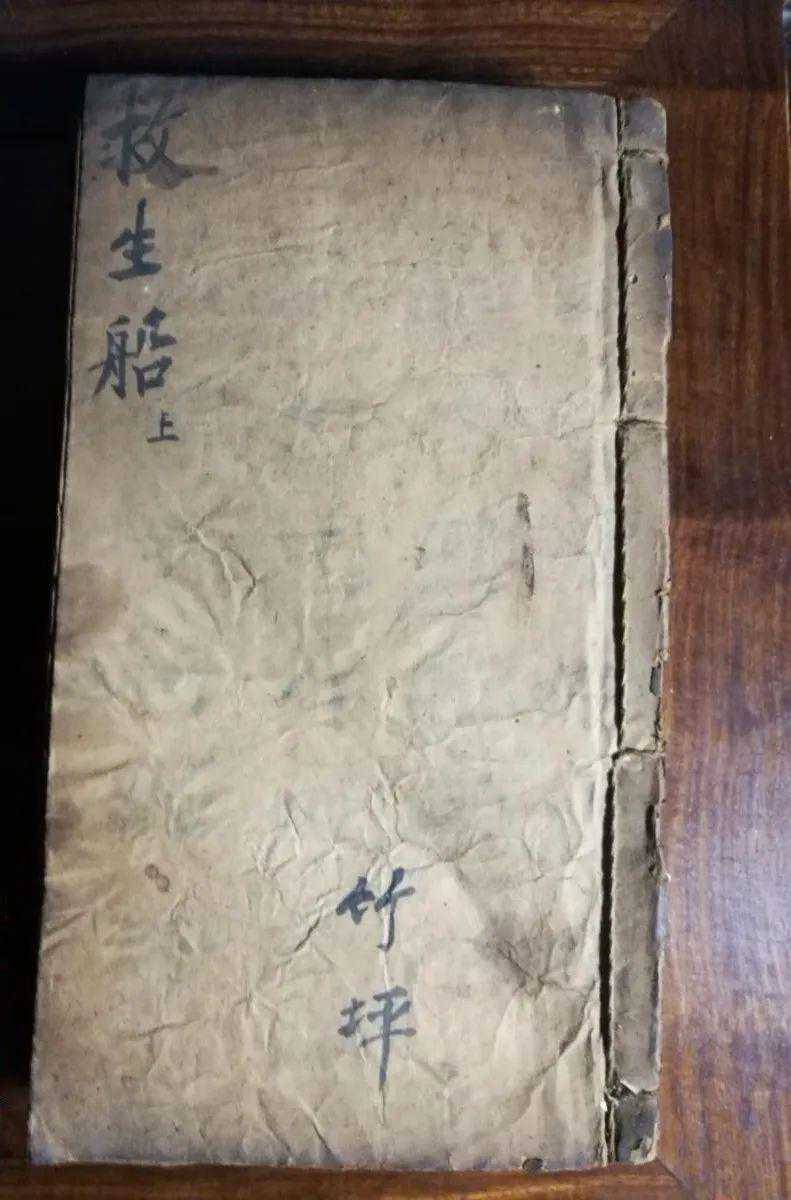 救生船上
竹坪